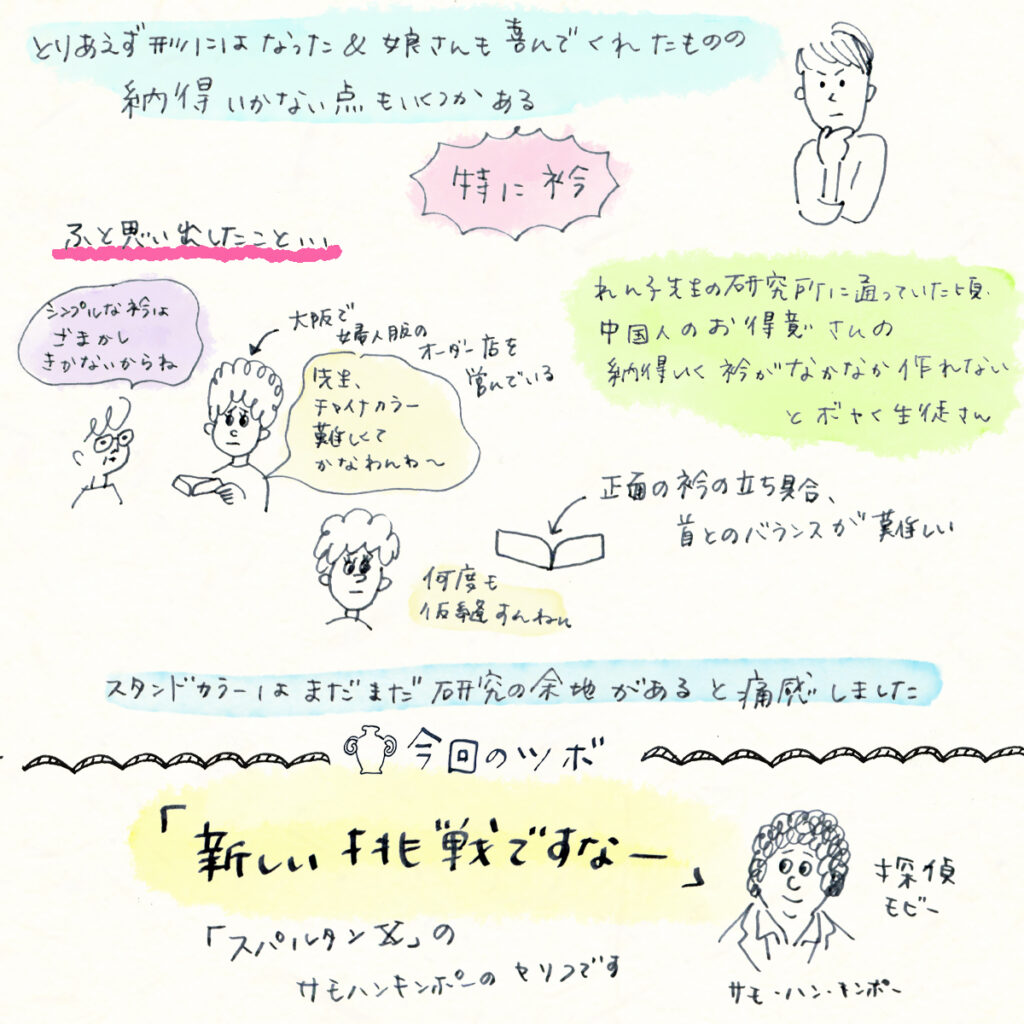 とりあえず形にはなった&娘さんも喜んでくれたものの
納得いかない点もいくつかある
特に衿
ふと思い出したこと…
シンプルな衿は
ごまかし
きかないからね
大阪で
婦人服の
オーダー店を
営んでいる
先生、
チャイナカラー
難しくて
かなわんわ〜
れん子先生の研究所に通っていた頃、
中国人のお得意さんの
納得いく衿がなかなか作れない
とボヤく生徒さん
正面の衿の立ち具合、
首とのバランスが難しい
何度も
仮縫すんねん
スタンドカラーはまだまだ研究の余地があると痛感しました
今回のツボ
「新しい挑戦ですなー」
「スパルタンX」の
サモハンキンポーのセリフです
探偵
モビー
サモ・ハン・キンポー